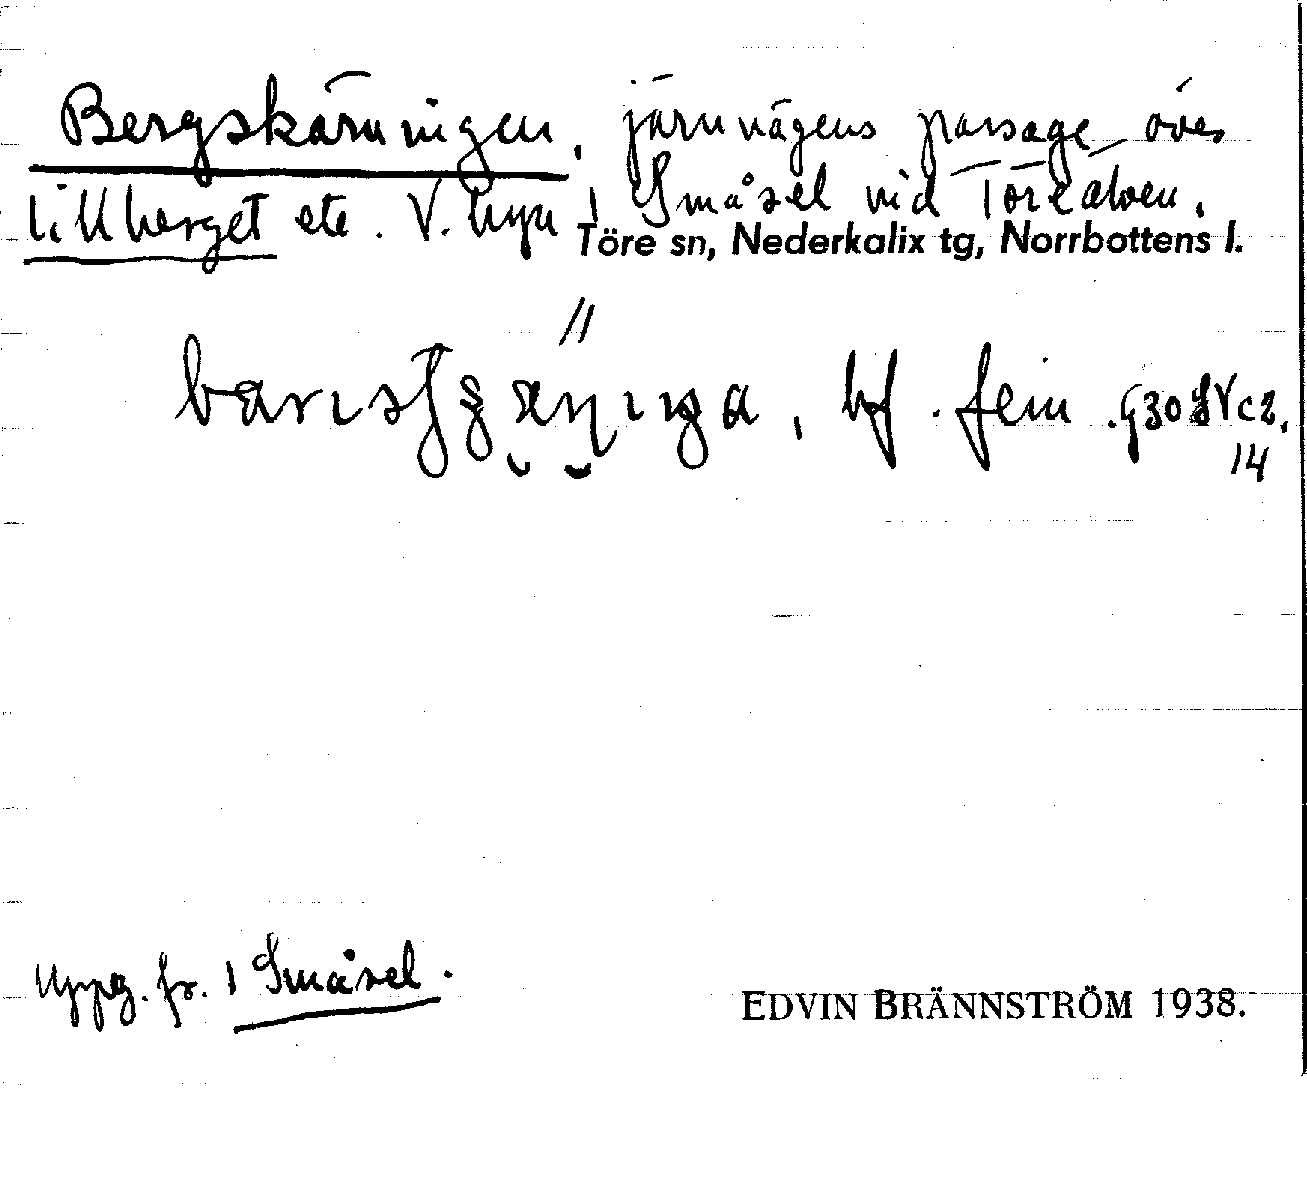 Bergskärningen, järnvägens passage över
Lillberget etc. V. byn, Småsel vid Töreälven.
Töre sn, Nederkalix tg, Norrbottens l.
bf. fem. G30SVc2.
14
Uppg. fr. 1 Småsel.
EDVIN BRÄNNSTRÖM 1938.